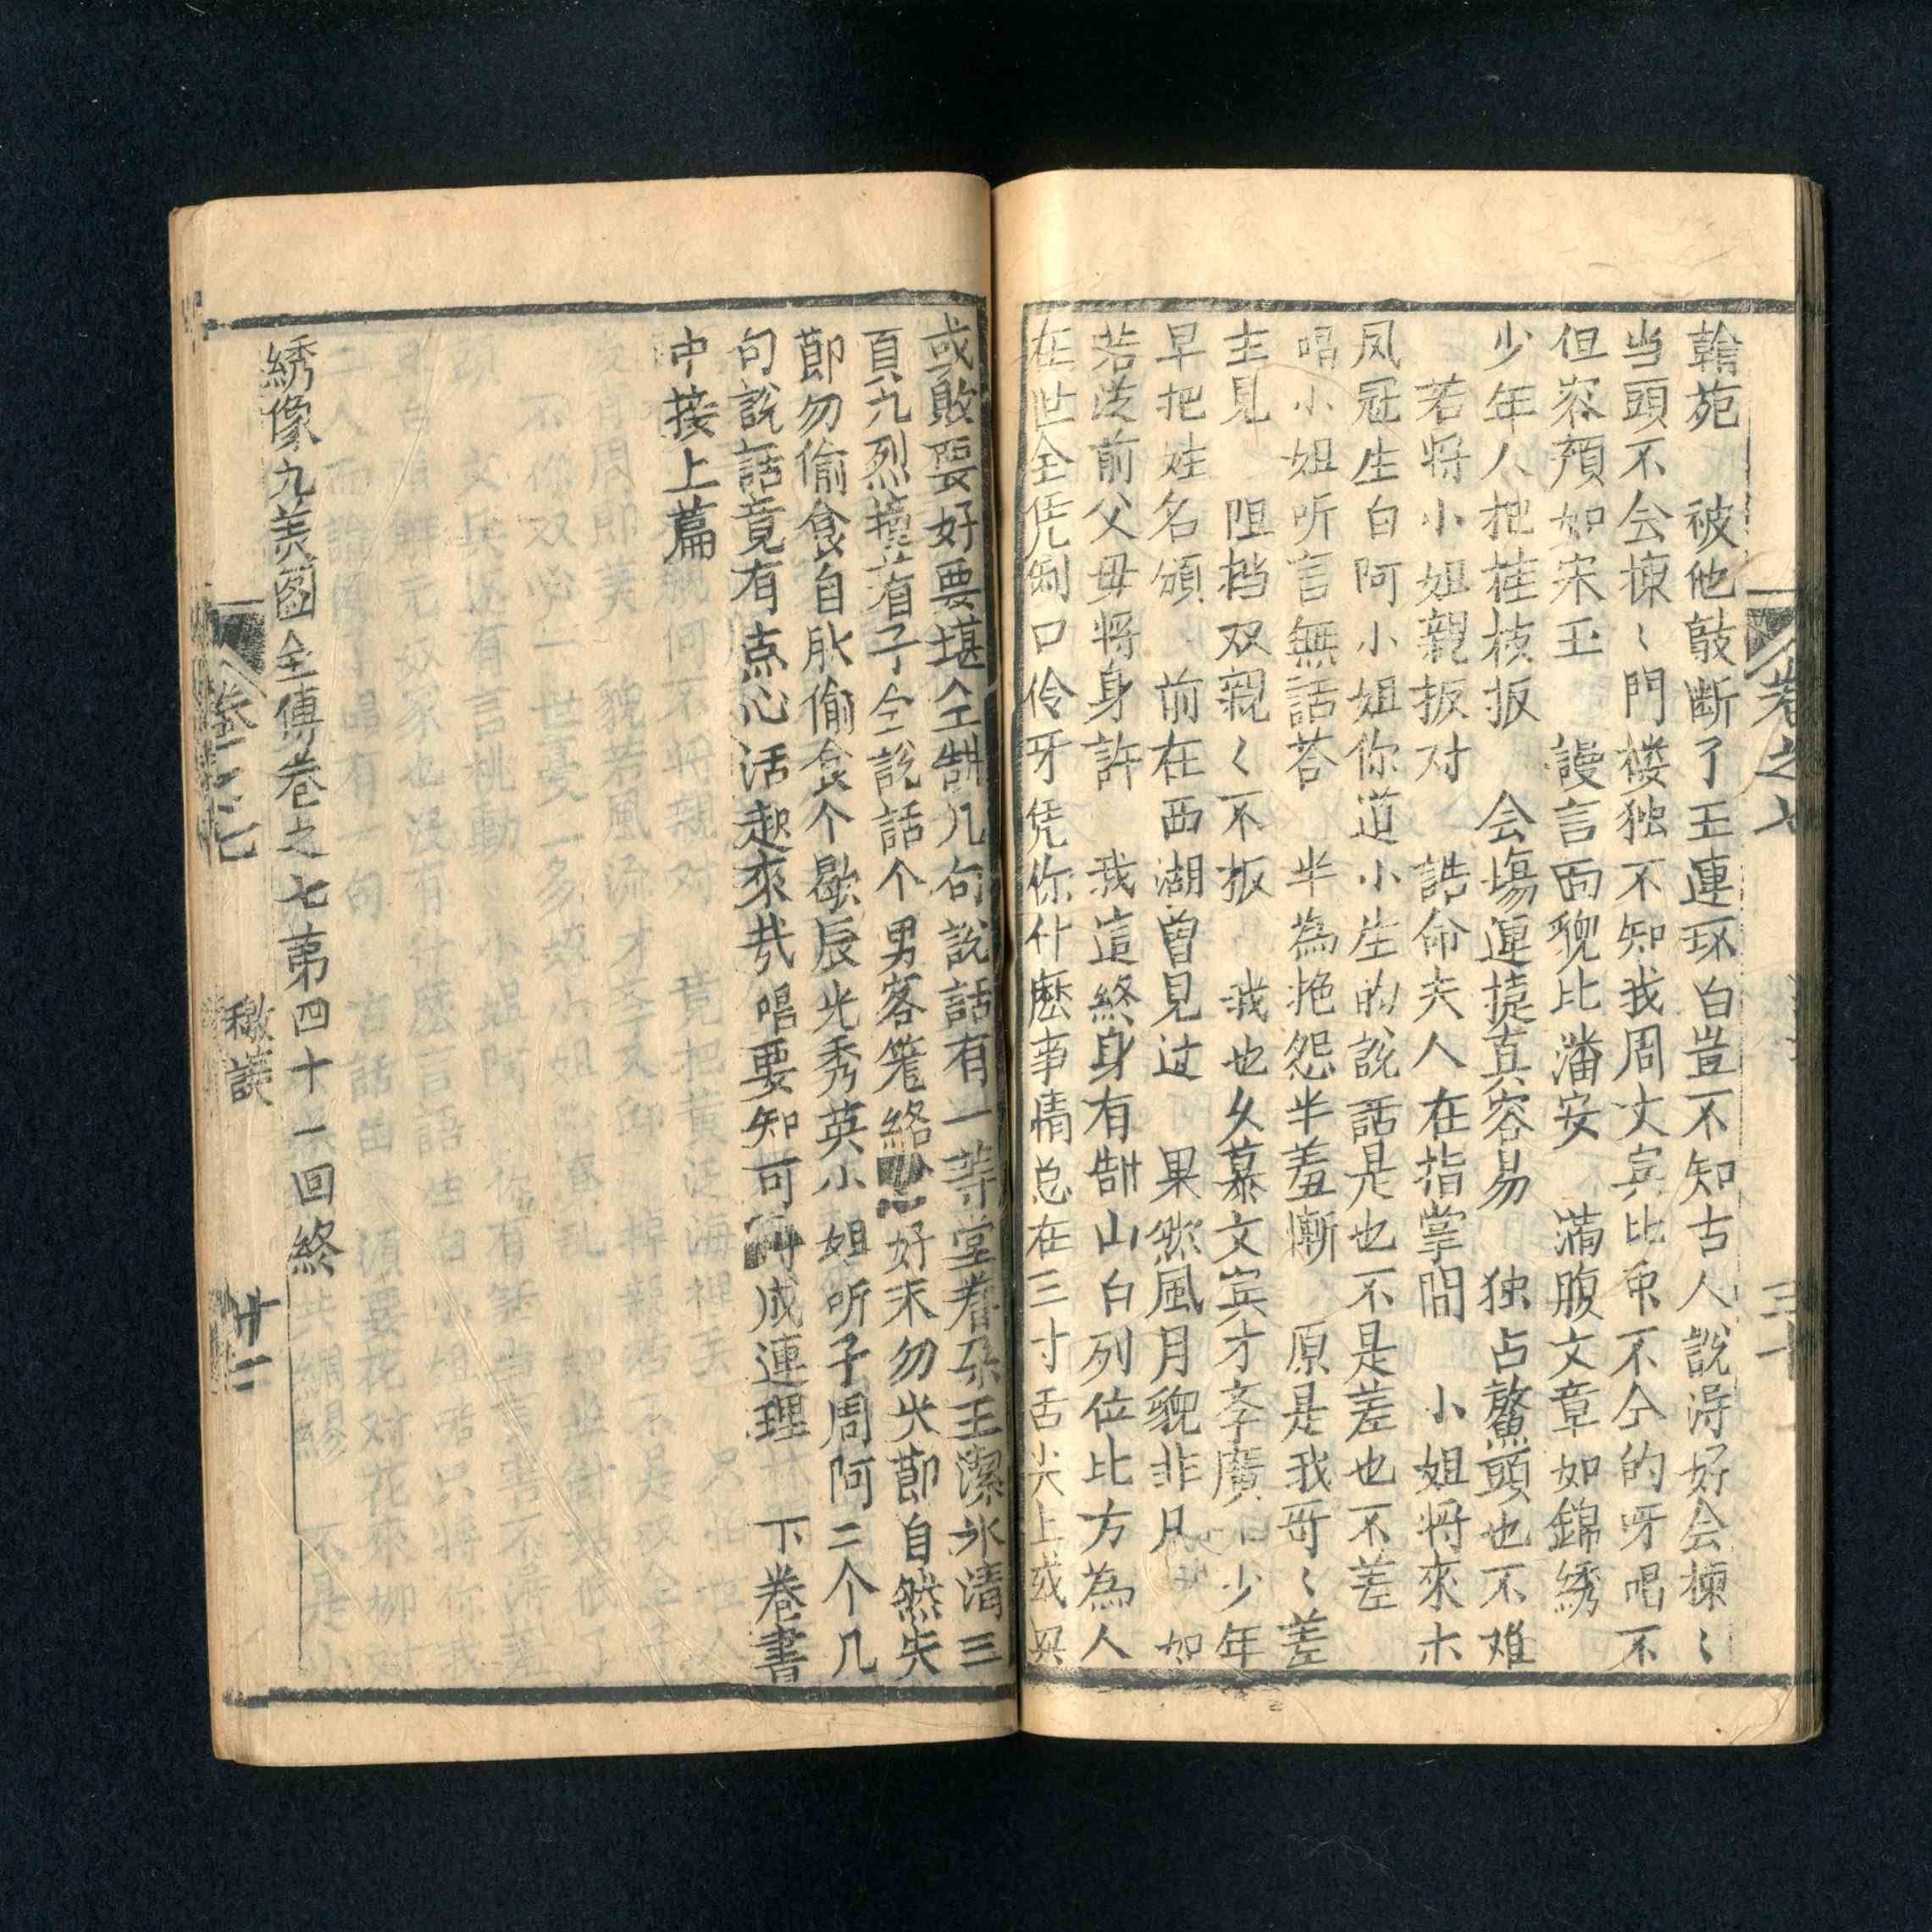 卷之七
三十
翰苑　被他敲断了玉連环白豈不知古人說淂好会揀〻
当頭不会揀〻門楼独不知我周文宾比众不仝的呀唱不
但容顏如宋玉　謾言面貌比潘安　滿腹文章如錦綉
少年人把桂枝扳　会塲連捷真容易　独占鰲頭也不难
若将小姐親扳对　誥命夫人在指掌間　小姐将來木
凤冠生白阿小姐你道小生的說話是也不是差也不差
唱小姐听言無話荅　半為抱怨半羞慚　原是我哥〻差
主見　阻档双親〻不扳　我也久慕文宾才李廣　少年
早把姓名頒　前在西湖曾見过　果然風月貌非凡　如
若没前父母将身許　我這終身有靠山白列位比方為人
在世全凭　口伶牙凭你什麽事情总在三寸舌尖上或兴
或敗要好要堪全靠几句說話有一等堂眷朵玉潔氷清三
頁九烈　着子仝說話个男客　絡　好末勿失節自然失
節勿偷食自　偷食个歇辰光秀英小姐听子周阿二个几
句說話竟有点心活起來哉唱要知可　成連理　下卷書
中接上篇
綉像九美图全傳卷之七第四十一回終
卷之七
廿二